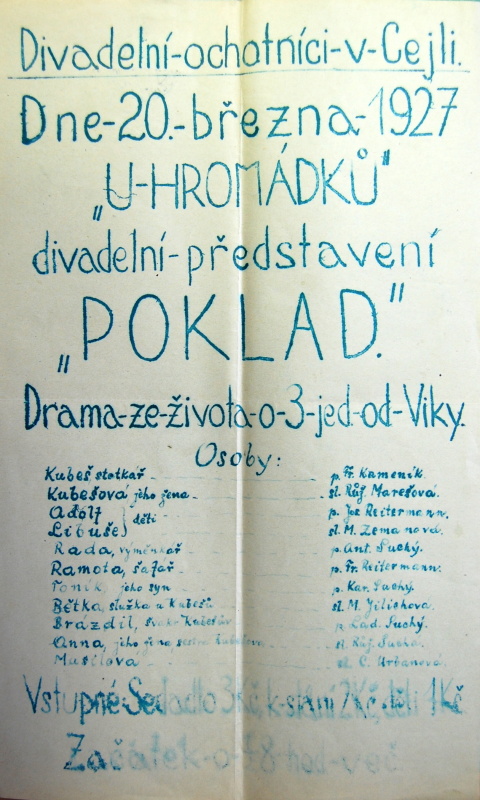 Divadelní-ochotníci-v-Cejli.
Dne-20.-března-1927
„U-HROMÁDKŮ"
divadelní-představení
„POKLAD."
Drama-ze-života-o-3-jed-od-Viky.
Osoby:
Kubeš statkář p. Fr. Kameník.
Kubešova jeho žena sl. Růž. Marešova.
Adolf p. Jos Reitermann.
Libuše } děti sl. M. Zemanova.
Rada, výměnkář p. Ant. Suchý.
Ramota, šafář p. Fr. Reitermann.
Toník, jeho syn p. Kar. Suchý.
Bětka, služka u Kubešů sl. M. Jilichova.
Brázdil, švakr Kubešův p. Lad. Suchý.
Anna, jeho žena sestra Kubešova sl. Růž. Sucha.
Musilova sl. C. Urbanová.
Vstupné: Sedadlo 3 Kč, k-stání 2 Kč, děti 1 Kč
Začátek-o-8-hod-več.